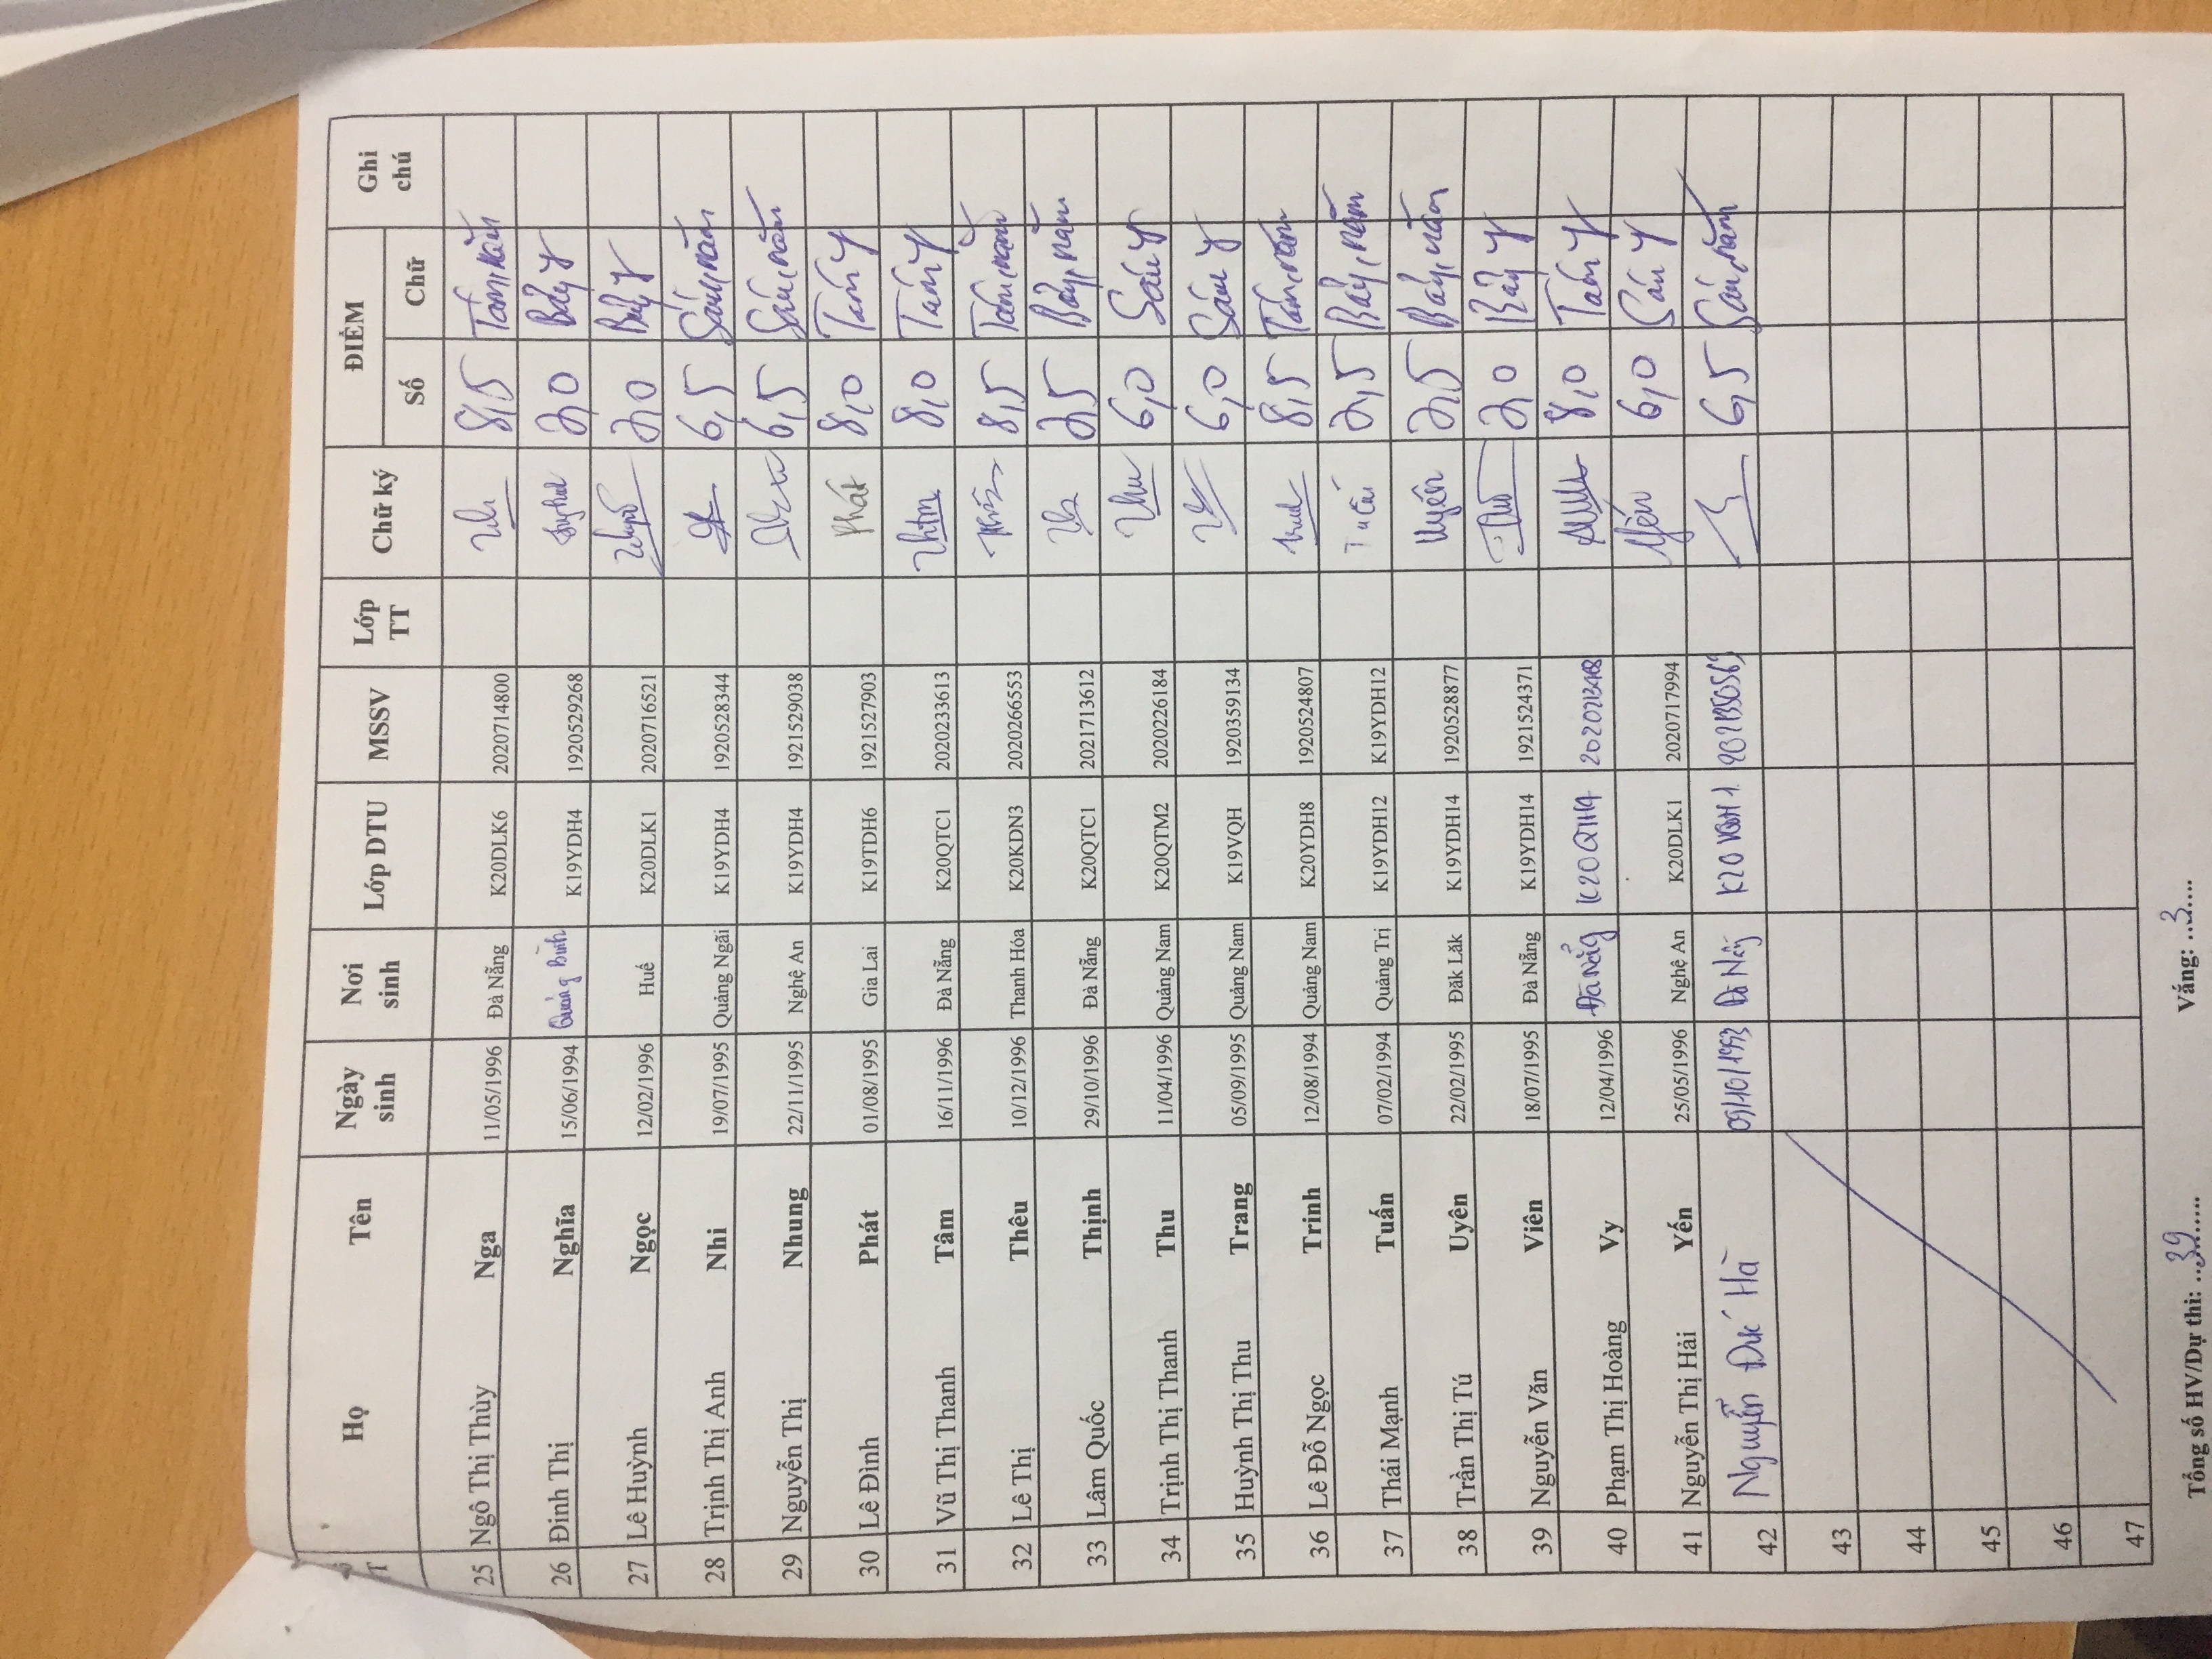 T Họ Tên Ngày sinh Nơi sinh Lớp DTU MSSV Lớp TT Chữ ký ĐIỂM Ghi chú
Số Chữ
25 Ngô Thị Thùy Nga 11/05/1996 Đà Nẵng K20DLK6 2020714800 8,5 Tám, năm
26 Đinh Thị Nghĩa 15/06/1994 Quảng Bình K19YDH4 1920529268 7,0 Bảy
27 Lê Huỳnh Ngọc 12/02/1996 Huế K20DLK1 2020716521 7,0 Bảy
28 Trịnh Thị Anh Nhi 19/07/1995 Quảng Ngãi K19YDH4 1920528344 6,5 Sáu, năm
29 Nguyễn Thị Nhung 22/11/1995 Nghệ An K19YDH4 1921529038 6,5 Sáu, năm
30 Lê Đình Phát 01/08/1995 Gia Lai K19TDH6 1921527903 Phát 8,0 Tám
31 Vũ Thị Thanh Tâm 16/11/1996 Đà Nẵng K20QTC1 2020233613 8,0 Tám
32 Lê Thị Thêu 10/12/1996 Thanh Hóa K20KDN3 2020266553 8,5 Tám, năm
33 Lâm Quốc Thịnh 29/10/1996 Đà Nẵng K20QTC1 2021713612 7,5 Bảy, năm
34 Trịnh Thị Thanh Thu 11/04/1996 Quảng Nam K20QTM2 2020226184 Thu 6,0 Sáu
35 Huỳnh Thị Thu Trang 05/09/1995 Quảng Nam K19VQH 1920359134 6,0 Sáu
36 Lê Đỗ Ngọc Trinh 12/08/1994 Quảng Nam K20YDH8 1920524807 8,5 Tám, năm
37 Thái Mạnh Tuấn 07/02/1994 Quảng Trị K19YDH12 K19YDH12 Tuấn 7,5 Bảy, năm
38 Trần Thị Tú Uyên 22/02/1995 Đăk Lăk K19YDH14 1920528877 Uyên 7,5 Bảy, năm
39 Nguyễn Văn Viên 18/07/1995 Đà Nẵng K19YDH14 1921524371 7,0 Bảy
40 Phạm Thị Hoàng Vy 12/04/1996 Đà Nẵng K20QTH4 8,0 Tám
41 Nguyễn Thị Hải Yến 25/05/1996 Nghệ An K20DLK1 2020717994 Yến 6,0 Sáu
42 Nguyễn Đức Hà 09/10/1993 Đà Nẵng 6,5 Sáu, năm
43
44
45
46
47
Tổng số HV/Dự thi: ..39....... Vắng: ...3....